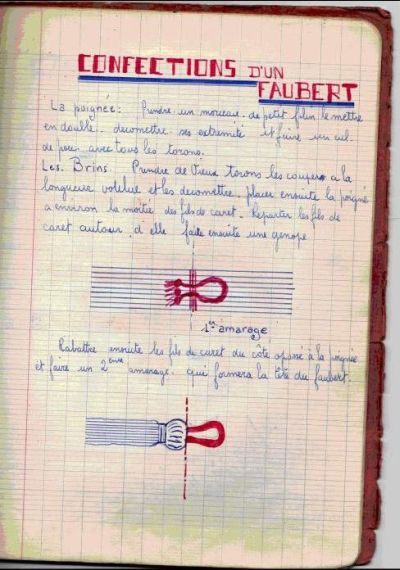 CONFECTIONS D'UN
FAUBERT
La poignée: Prendre un morceau de petit filin le mettre
en double. decomettre ses extremité et faire un cul
de porc avec tous les torons.
Les Brins. Prendre de Vieux torons les coupers a la
longueur voulue et les decomettre, placer ensuite la poignée
a environ la moitie des fils de caret. Repartir les fils de
caret autour d elle faite ensuite une genope.
1er amarage
Rabattre ensuite les fils de caret du côté opposé à la poignée
et faire un 2eme amarage qui formera la tête du faubert.